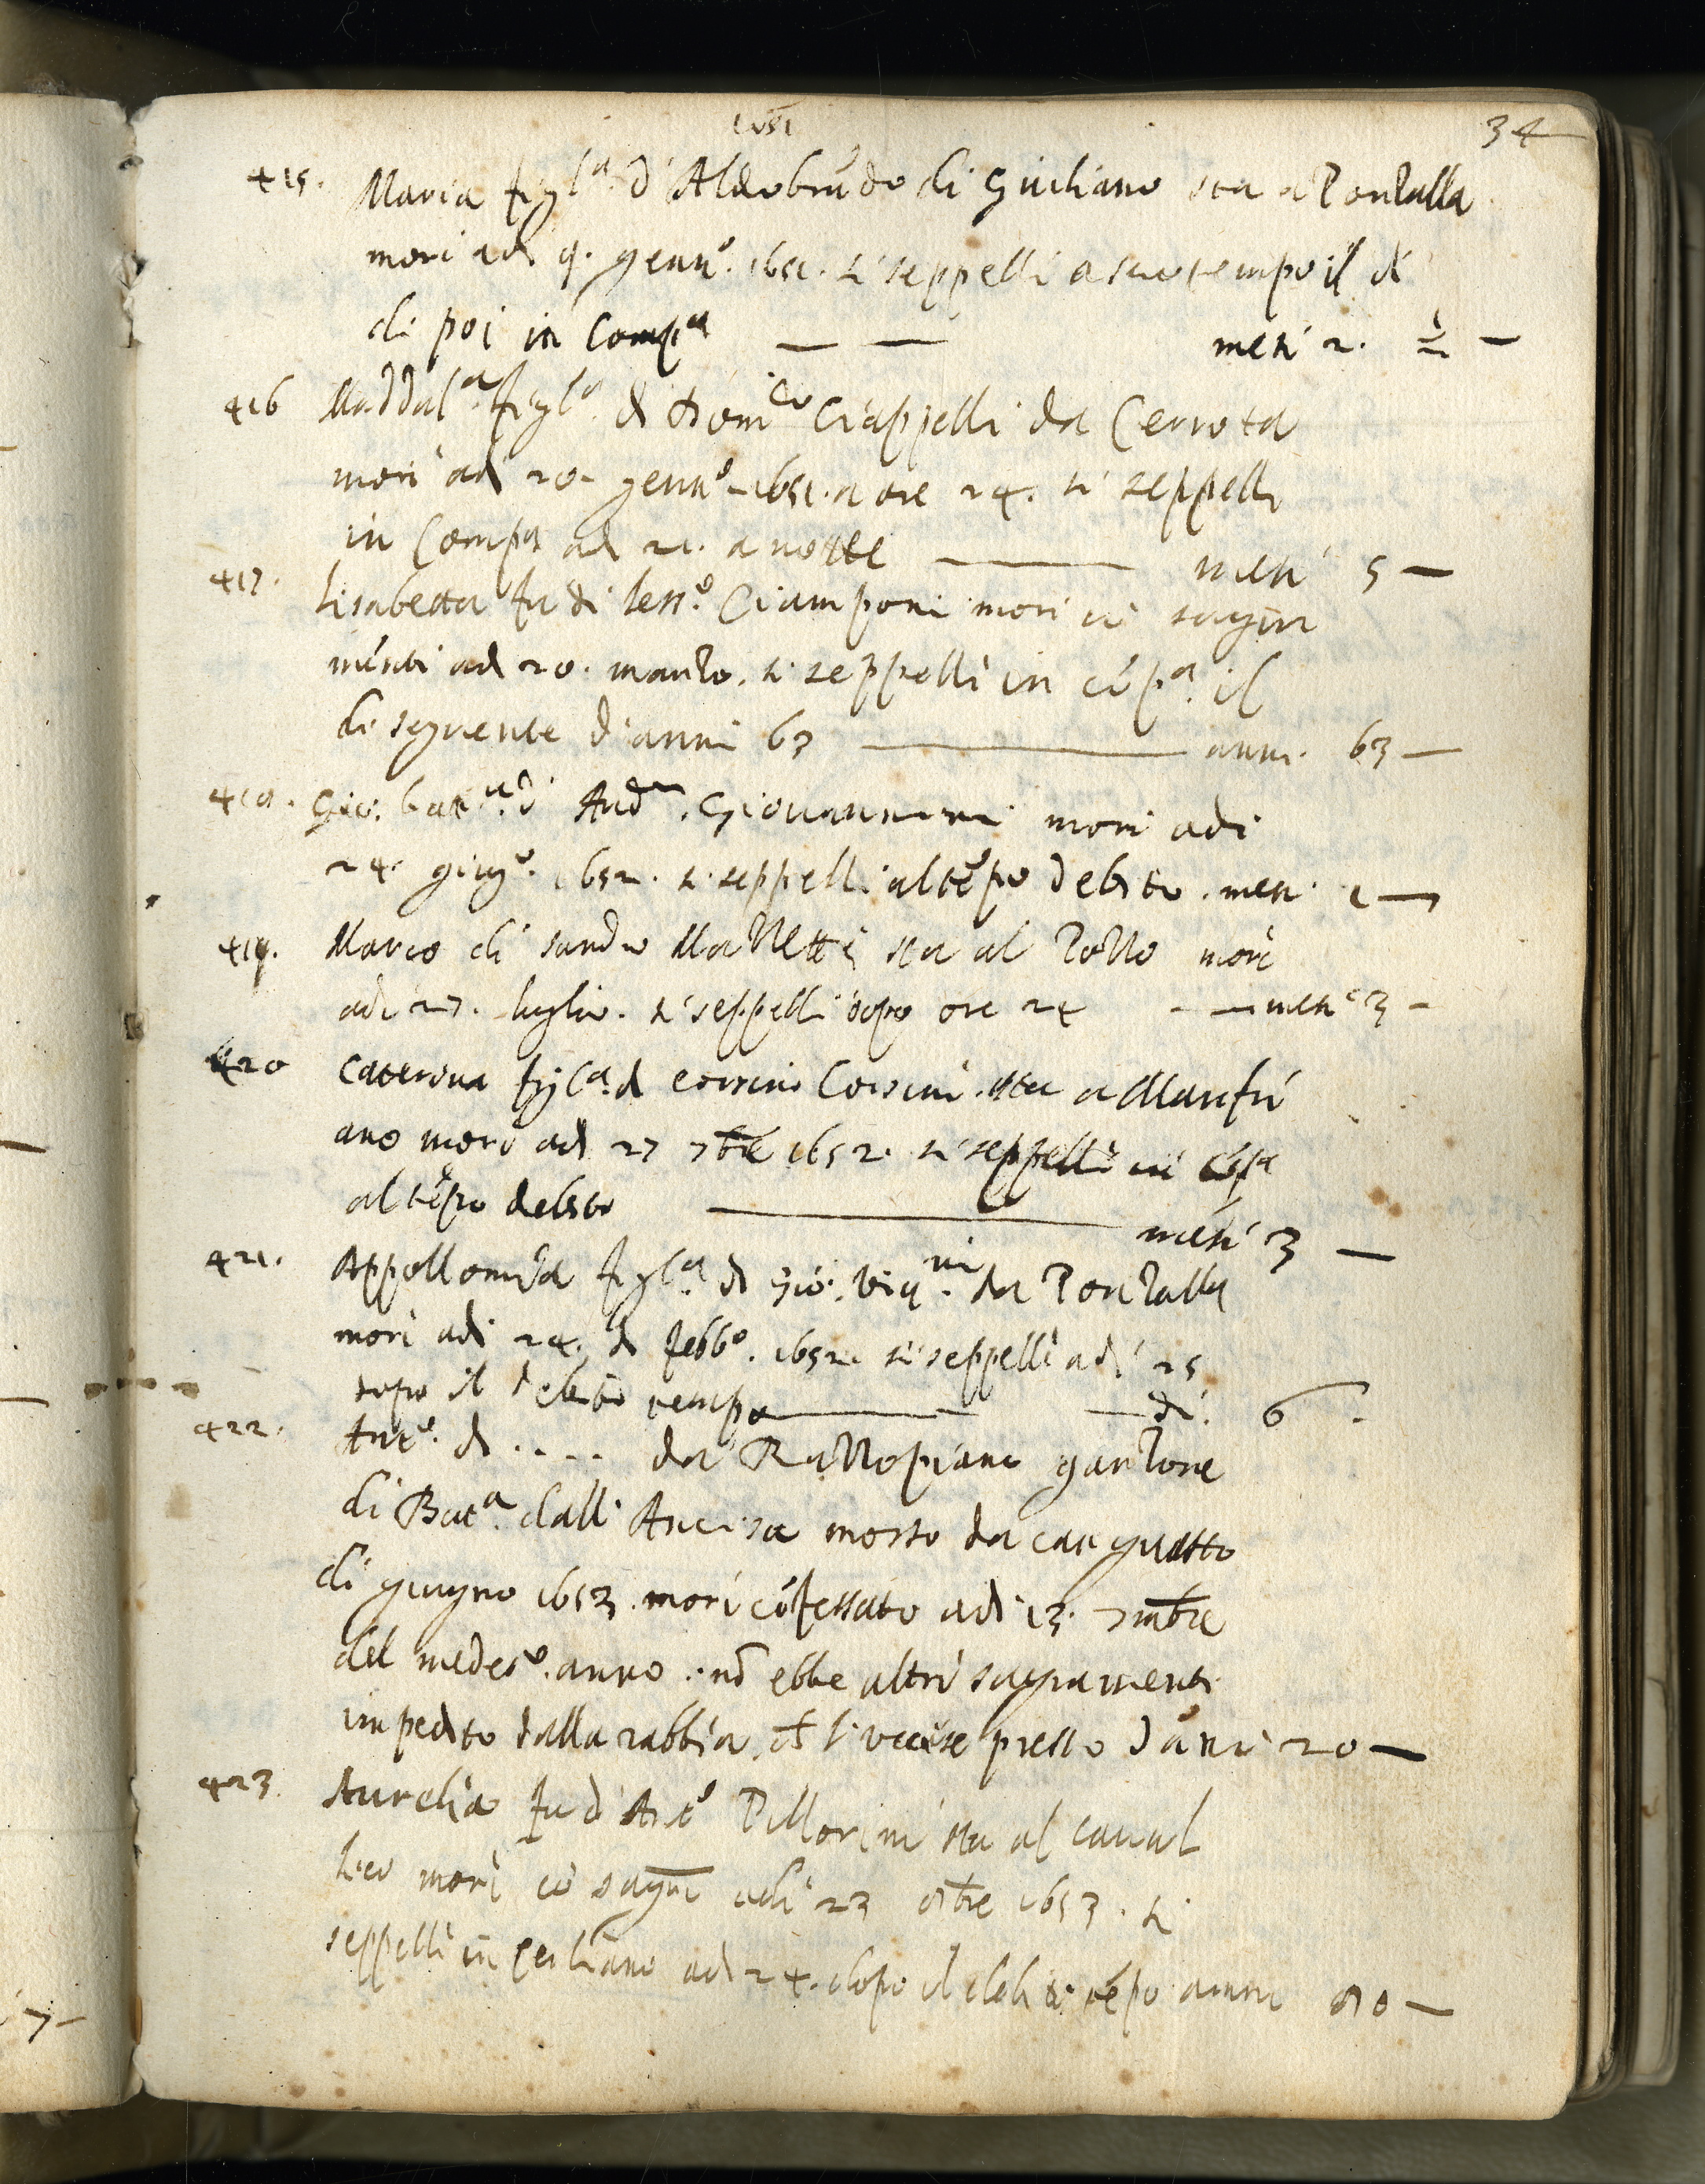 1651
34
415. Maria figl.a d'Aldobrãdo di Giuliano sta a Ponzalla
morì adi 9. genn.o 1651. si seppellì a suo tempo il dì
di poi in Comp.a — — mesi 2. ½ —
416 Maddal.a figl.a di Dom.co Ciappelli da Cerreta
morì adi 20. genn.o 1651. a ore 24. si seppellì
in Comp.a adi 21. a notte — mesi 5 —
417. Lisabetta fu di Less.o Ciamponi morì cõ sagra
mẽnti adi 20. marzo. si seppellì in cõp.a il
di seguente d'anni 63 — anni. 63 —
418. Gio: Batt.a d' And.a Giovannini morì adi
24. giug.o 1652. si seppellì al tẽpo debito. mesi 1 —
419. Marco di Sandro Mazzetti sta al Pozzo morì
adi 27. luglio. si seppellì dopo ore 24 - — mesi 3 -
420 Caterina figl.a di Corsino Corsini. sta a Manfri
ano morì adi 27 7bre 1652. si seppellì in cõp.a
al tẽpo debito — mesi 3 —
421. Appollonia figl.a di Gio: Vig.ni da Ponzalla
morì adi 24. di febb.o 1652. si seppellì adi 25
dopo il debito tempo — — dì. 6.
422. Ant.o di .... da Razzopiano garzone
di Batt.a dall' Ancisa morso da can guasto
di giugno 1653. morì cõfessato adi 13. 7mbre
del medes.o anno. nõ ebbe altri sagramenti
impedito dalla rabbia, ch l'uccise presso d'ãni 20 —
423. Aurelia fu d'Ant.o Pillorini sta al caval
lico morì cõ sagri adi 23 8bre 1653. si
seppellì in adi 24. dopo il debito tẽpo anni 80 —
7 —